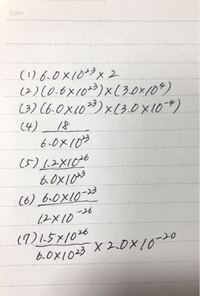 (1) 6.0×10²³×2
(2) (0.6×10²³)×(3.0×10⁴)
(3) (6.0×10²³)×(3.0×10⁻⁴)
(4) 18 / 6.0×10²³
(5) 1.2×10²⁶ / 6.0×10²³
(6) 6.0×10⁻²³ / 12×10⁻²⁶
(7) 1.5×10²⁶ / 6.0×10²³ × 2.0×10⁻²⁰